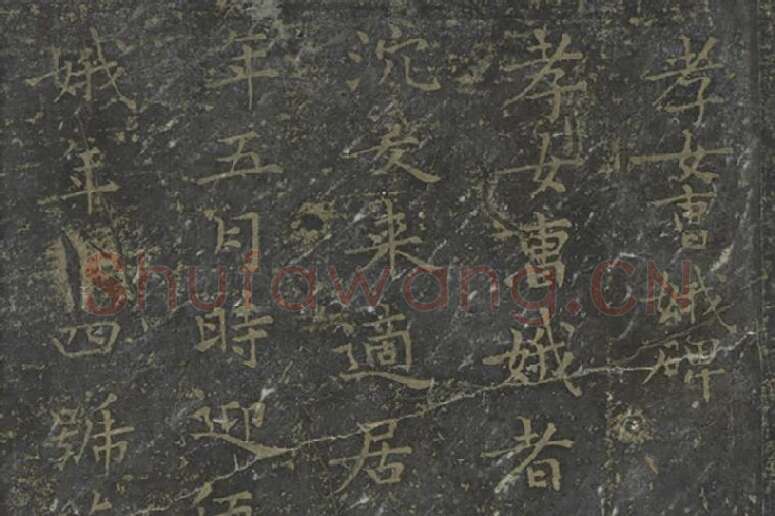 孝女曹娥碑
孝女曹娥者
沉爰来適居
年五月時迎
娥年十四號
Shufawang.CN